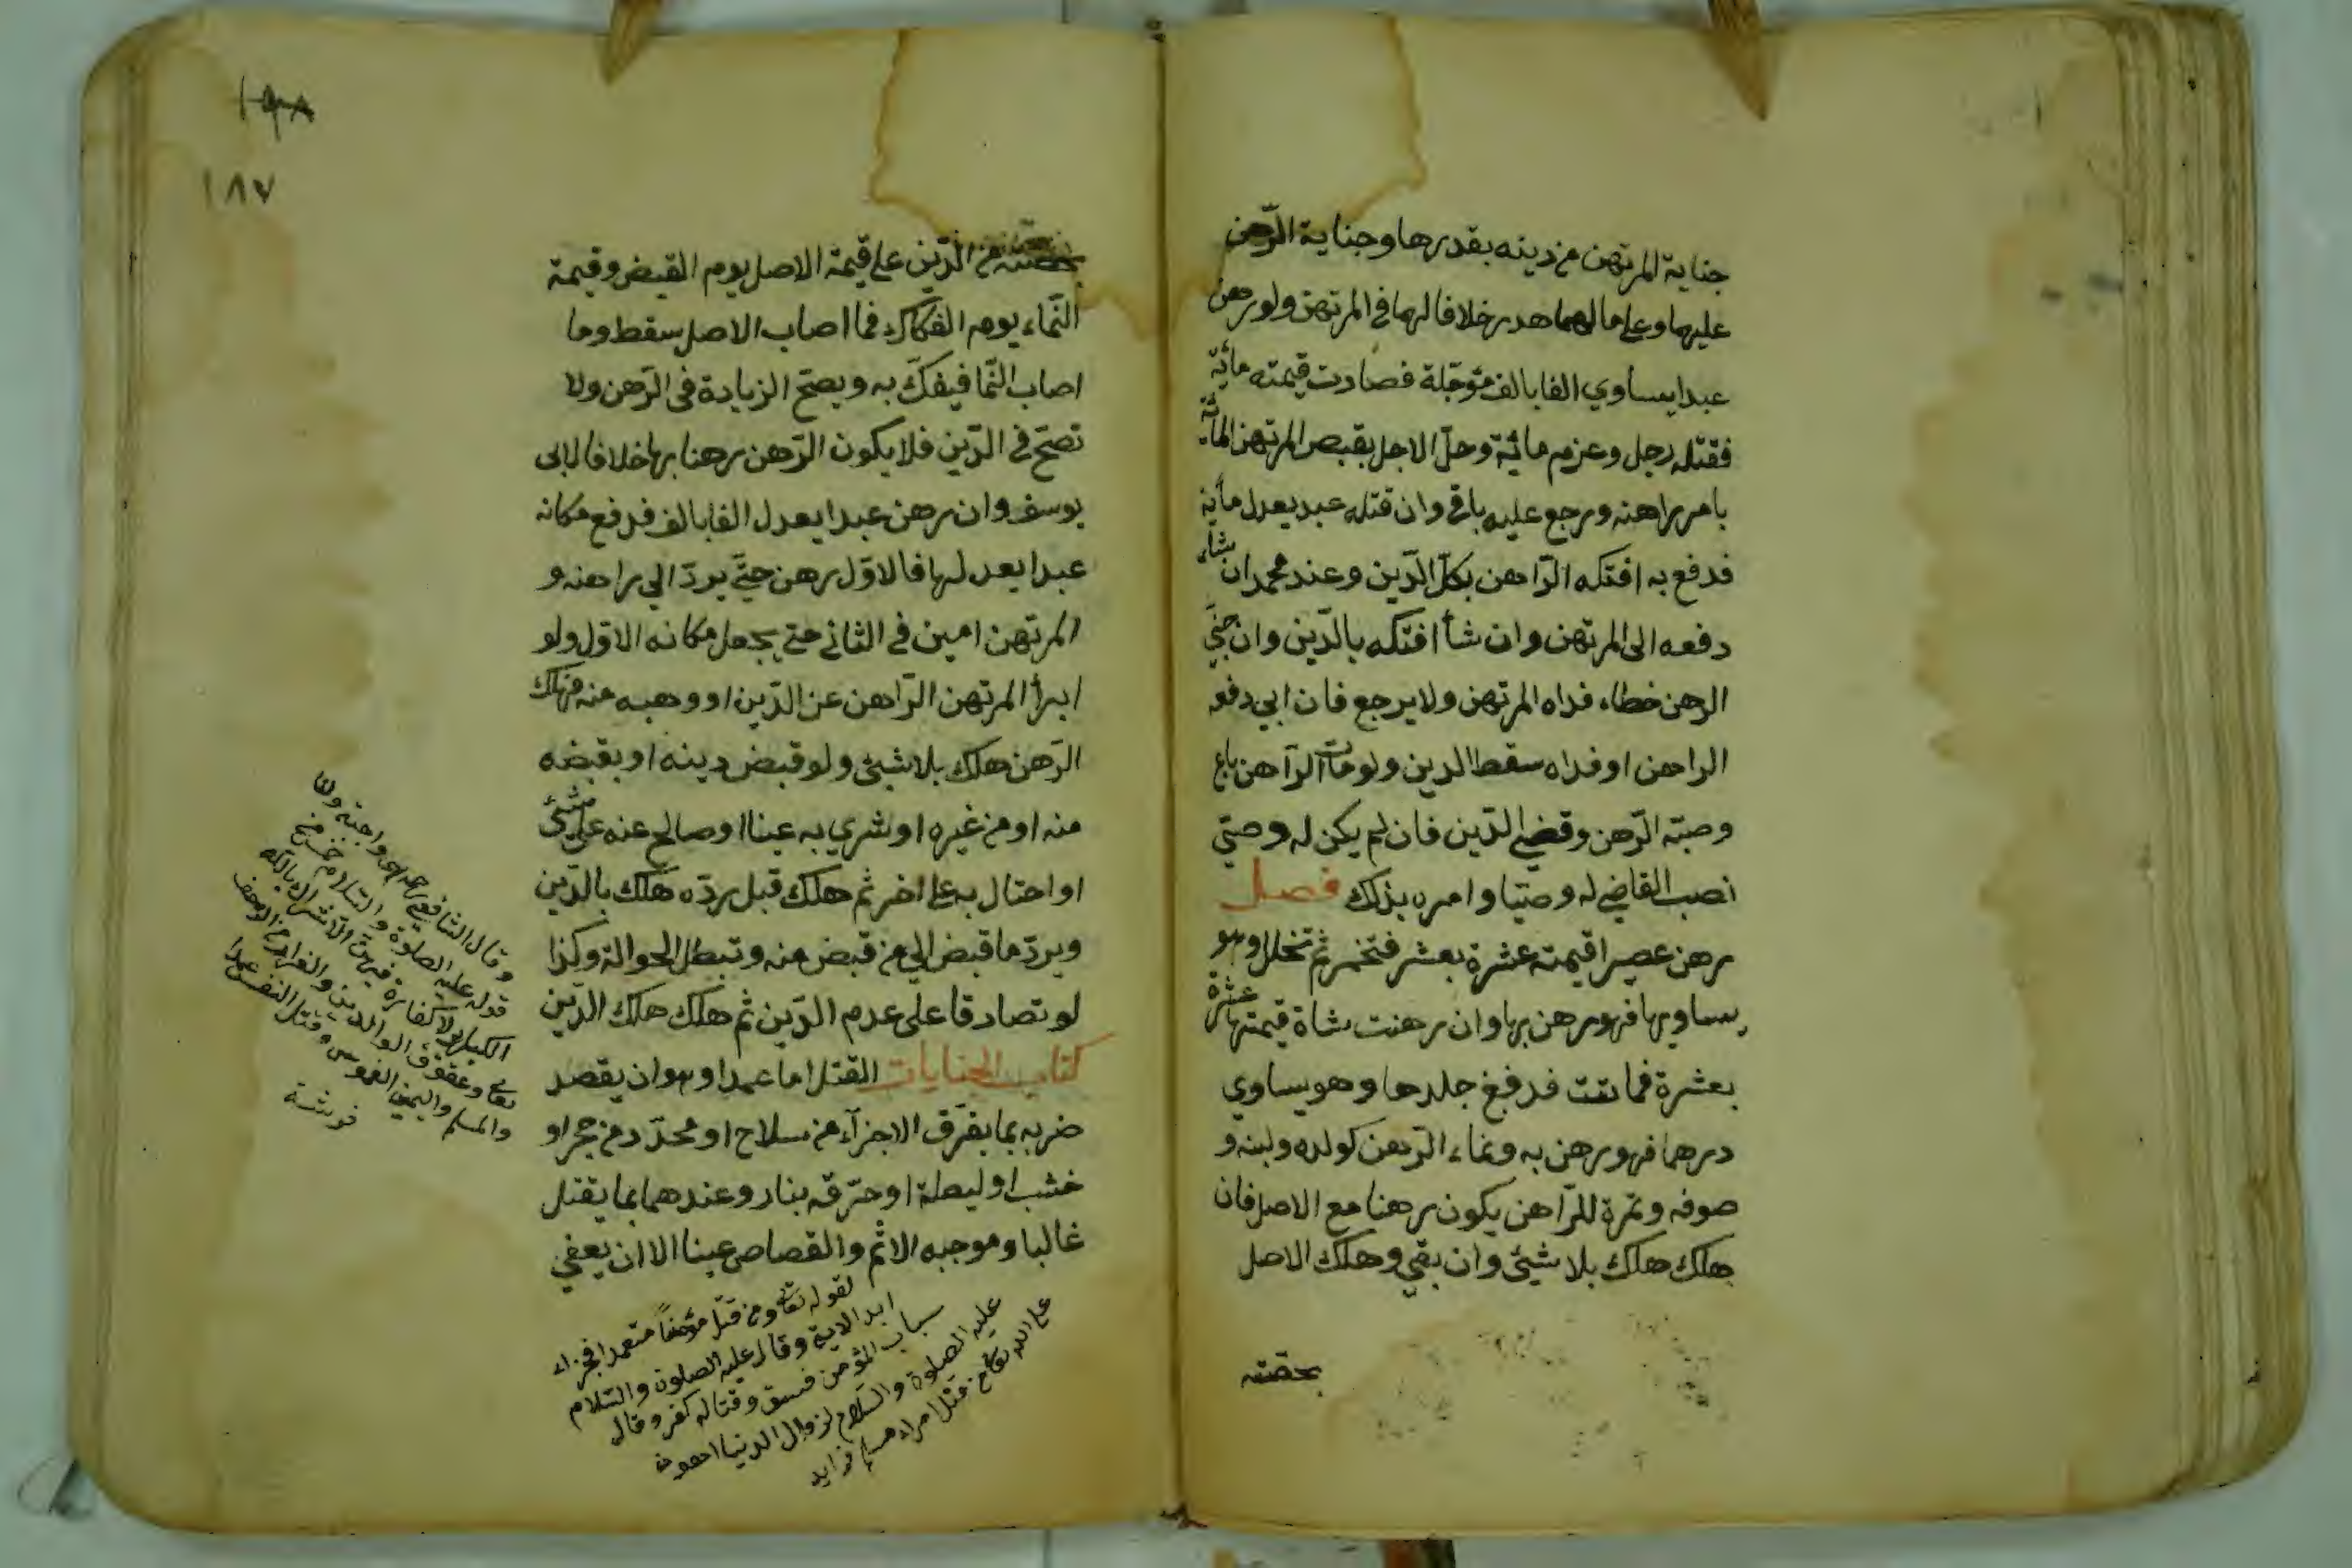 جناية المرتهن من دينه بقدرها وجناية الرّهن
عليهما وعلى مالهما هدر خلافا لهما في المرتهن ولو رهن
عبدا يساوي الفا بالف مؤجّلة فصارت قيمته مائة
فقتله رجل وغرم مائة وحلّ الاجل يقبض المرتهن المائة
بامر راهنه ورجع عليه باقي وان قتله عبد يعدل مائة
فدفع به افتكه الرّاهن بكلّ الدّين وعند محمد ان شاء
دفعه الى المرتهن وان شأ افتكه بالدّين وان جنى
الرهن خطاء فداه المرتهن ولا يرجع فان ابي دفعه
الراهن او فداه سقط الدين ولو مات الرّاهن باع
وصيّه الرّهن وقضى الدّين فان لم يكن له وصيّ
نصب القاضي له وصيّا وامره بذلك فصل
رهن عصيرا قيمته عشرة بعشر فتخمر ثم تخلل وهو
يساويها فهو رهن بها وان رهنت شاة قيمتها عشرة
بعشرة فماتت فدفغ جلدها وهو يساوي
درهما فهو رهن به ونماء الرّهن كولده ولبنه و
صوفه وثمرة للرّاهن يكون رهنا مع الاصل فان
هلك هلك بلا شيئ وان بقي وهلك الاصل
بحصّته
١٩٨
١٨٧
بحصّته من الدّين على قيمة الاصل يوم القبض وقيمة
النّماء يوم الفكاك فما اصاب الاصل سقط وما
اصاب النّما فيفكّ به ويصحّ الزيادة في الرّهن ولا
تصحّ في الدّين فلا يكون الرّهن رهنا بها خلافا لابى
يوسف وان رهن عبدا يعدل الفا بالف فدفع مكانه
عبدا يعدلها فالاوّل رهن حتّى يردّ الي راهنه و
المرتهن امين في الثاني حتى يجعل مكانه الاوّل ولو
ابرأ المرتهن الرّاهن عن الدّين او وهبه منه فهلك
الرّهن هلك بلا شيئ ولو قبض دينه او بقبضه
منه او من غيره او شري به عينا او صالح عنه على شيئ
او احتال به على اخر ثم هلك قبل ردّه هلك بالدّين
ويردّ ما قبض الي من قبض منه وتبطل الحوالة وكذا
لو تصادقا على عدم الدّين ثم هلك هلك الدّين
كتاب الجنايات القتل اما عمدا وهو ان يقصد
ضربه بما يفرّق الاجزآء من سلاح او محدّد من حجر او
خشب او ليطة او حرّقه بنار وعندهما بما يقتل
غالبا وموجبه الاثم والقصاص عينا الا ان يعفي
لقوله تعالى ومن قتل مؤمنًا متعمدا فجزاء
ابدا الاية وقال عليه الصلوة والسّلام
سباب المؤمن فسق وقتاله كفر وقال
عليه الصلوة والسّلام لزوال الدنيا اهون
على الله تعالى من قتل امراء مسلم
وقال الشافعي رحمه الله واجبة
قوله عليه الصلوة والسّلام خمس من
الكبائر لا كفارة فيهنّ الاشراك بالله
تعالى وعقوق الوالدين والفرار من الزحف
والمسلم واليمين الغموس وقتل النفس عمدا
فرشته